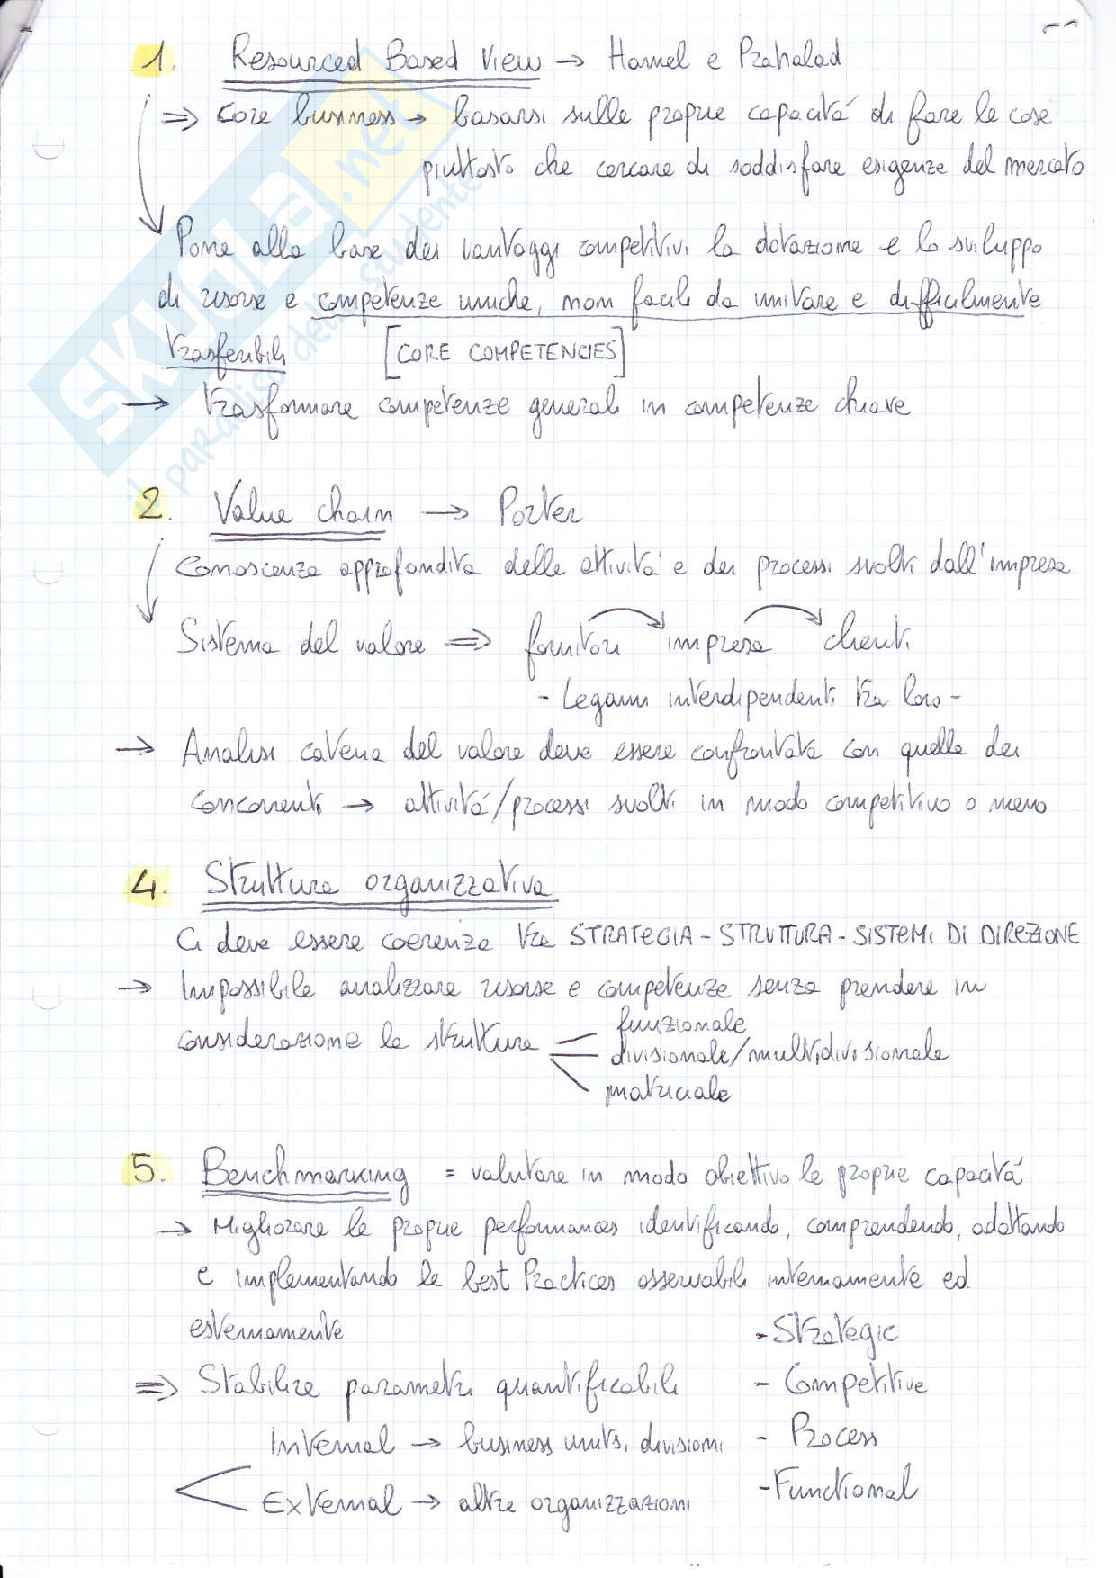 1. Resourced Based View → Hamel e Prahalad
⇒ Core business → basarsi sulle proprie capacità di fare le cose
piuttosto che cercare di soddisfare esigenze del mercato
Pone alla base dei vantaggi competitivi la dotazione e lo sviluppo
di risorse e competenze uniche, non facili da imitare e difficilmente
trasferibili [CORE COMPETENCIES]
→ trasformare competenze generali in competenze chiave
2. Value chain → Porter
Conoscenza approfondita delle attività e dei processi svolti dall'impresa
Sistema del valore ⇒ fornitori impresa clienti
- Legami interdipendenti tra loro -
→ Analisi catena del valore deve essere confrontata con quella dei
concorrenti → attività/processi svolti in modo competitivo o meno
4. Struttura organizzativa
Ci deve essere coerenza tra STRATEGIA - STRUTTURA - SISTEMI DI DIREZIONE
→ Impossibile analizzare risorse e competenze senza prendere in
considerazione la struttura
funzionale
divisionale/multidivisionale
matriciale
5. Benchmarking = valutare in modo obiettivo le proprie capacità
→ Migliorare le proprie performances identificando, comprendendo, adattando
e implementando le best Practices osservabili internamente ed
esternamente
- Strategic
⇒ Stabilire parametri quantificabili - Competitive
Internal → business units, divisioni - Process
External → altre organizzazioni - Functional
SKUOLA.net
il paradiso dello studente